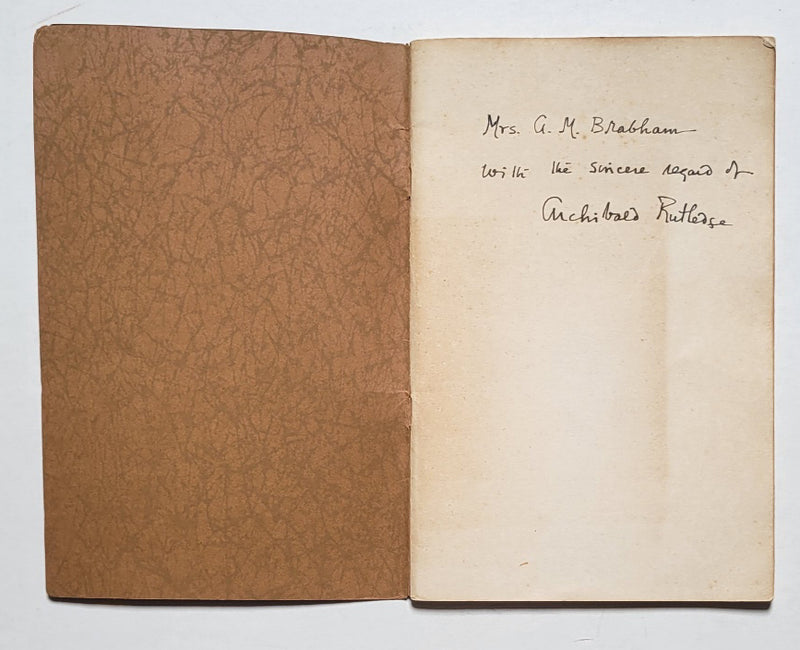 Mrs. A. M. Brabham
with the sincere regard of
Archibald Rutledge